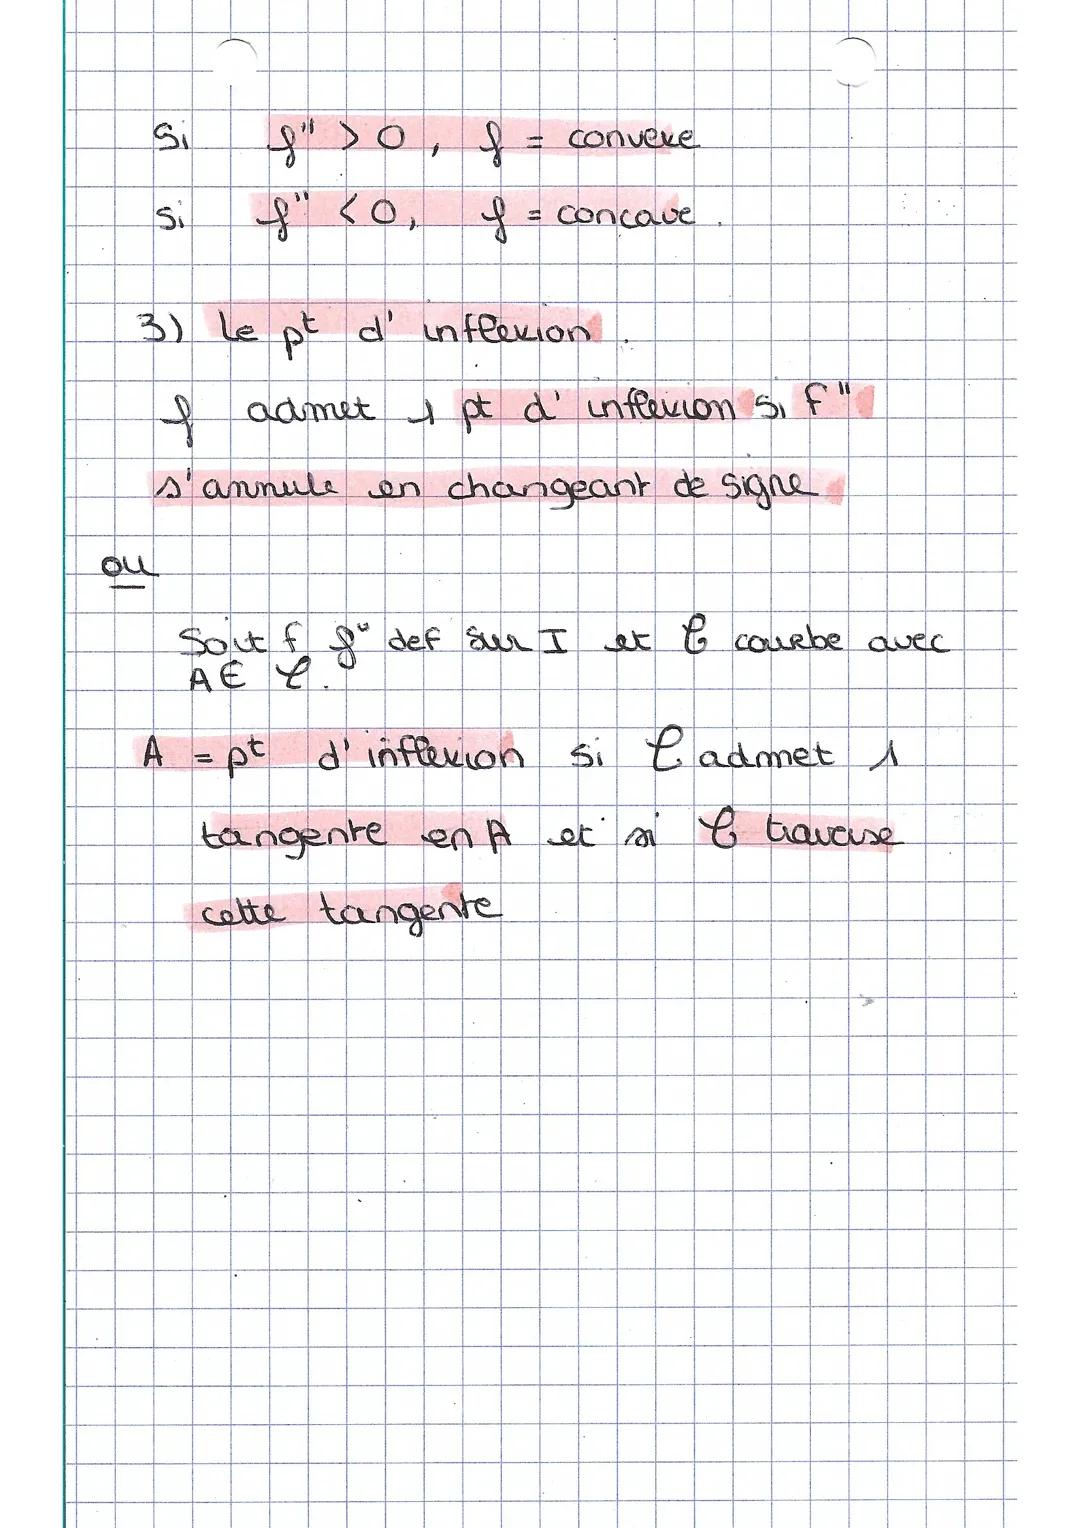 Si f'' > 0, f = convexe
Si f'' < 0, f = concave.
3) Le pt d'inflexion.
f admet 1 pt d'inflexion si f''
s'annule en changeant de signe
ou
Soit f fº def sur I et C courbe avec
A ∈ C.
A = pt d'inflexion si C admet 1
tangente en A et si C traverse
cette tangente